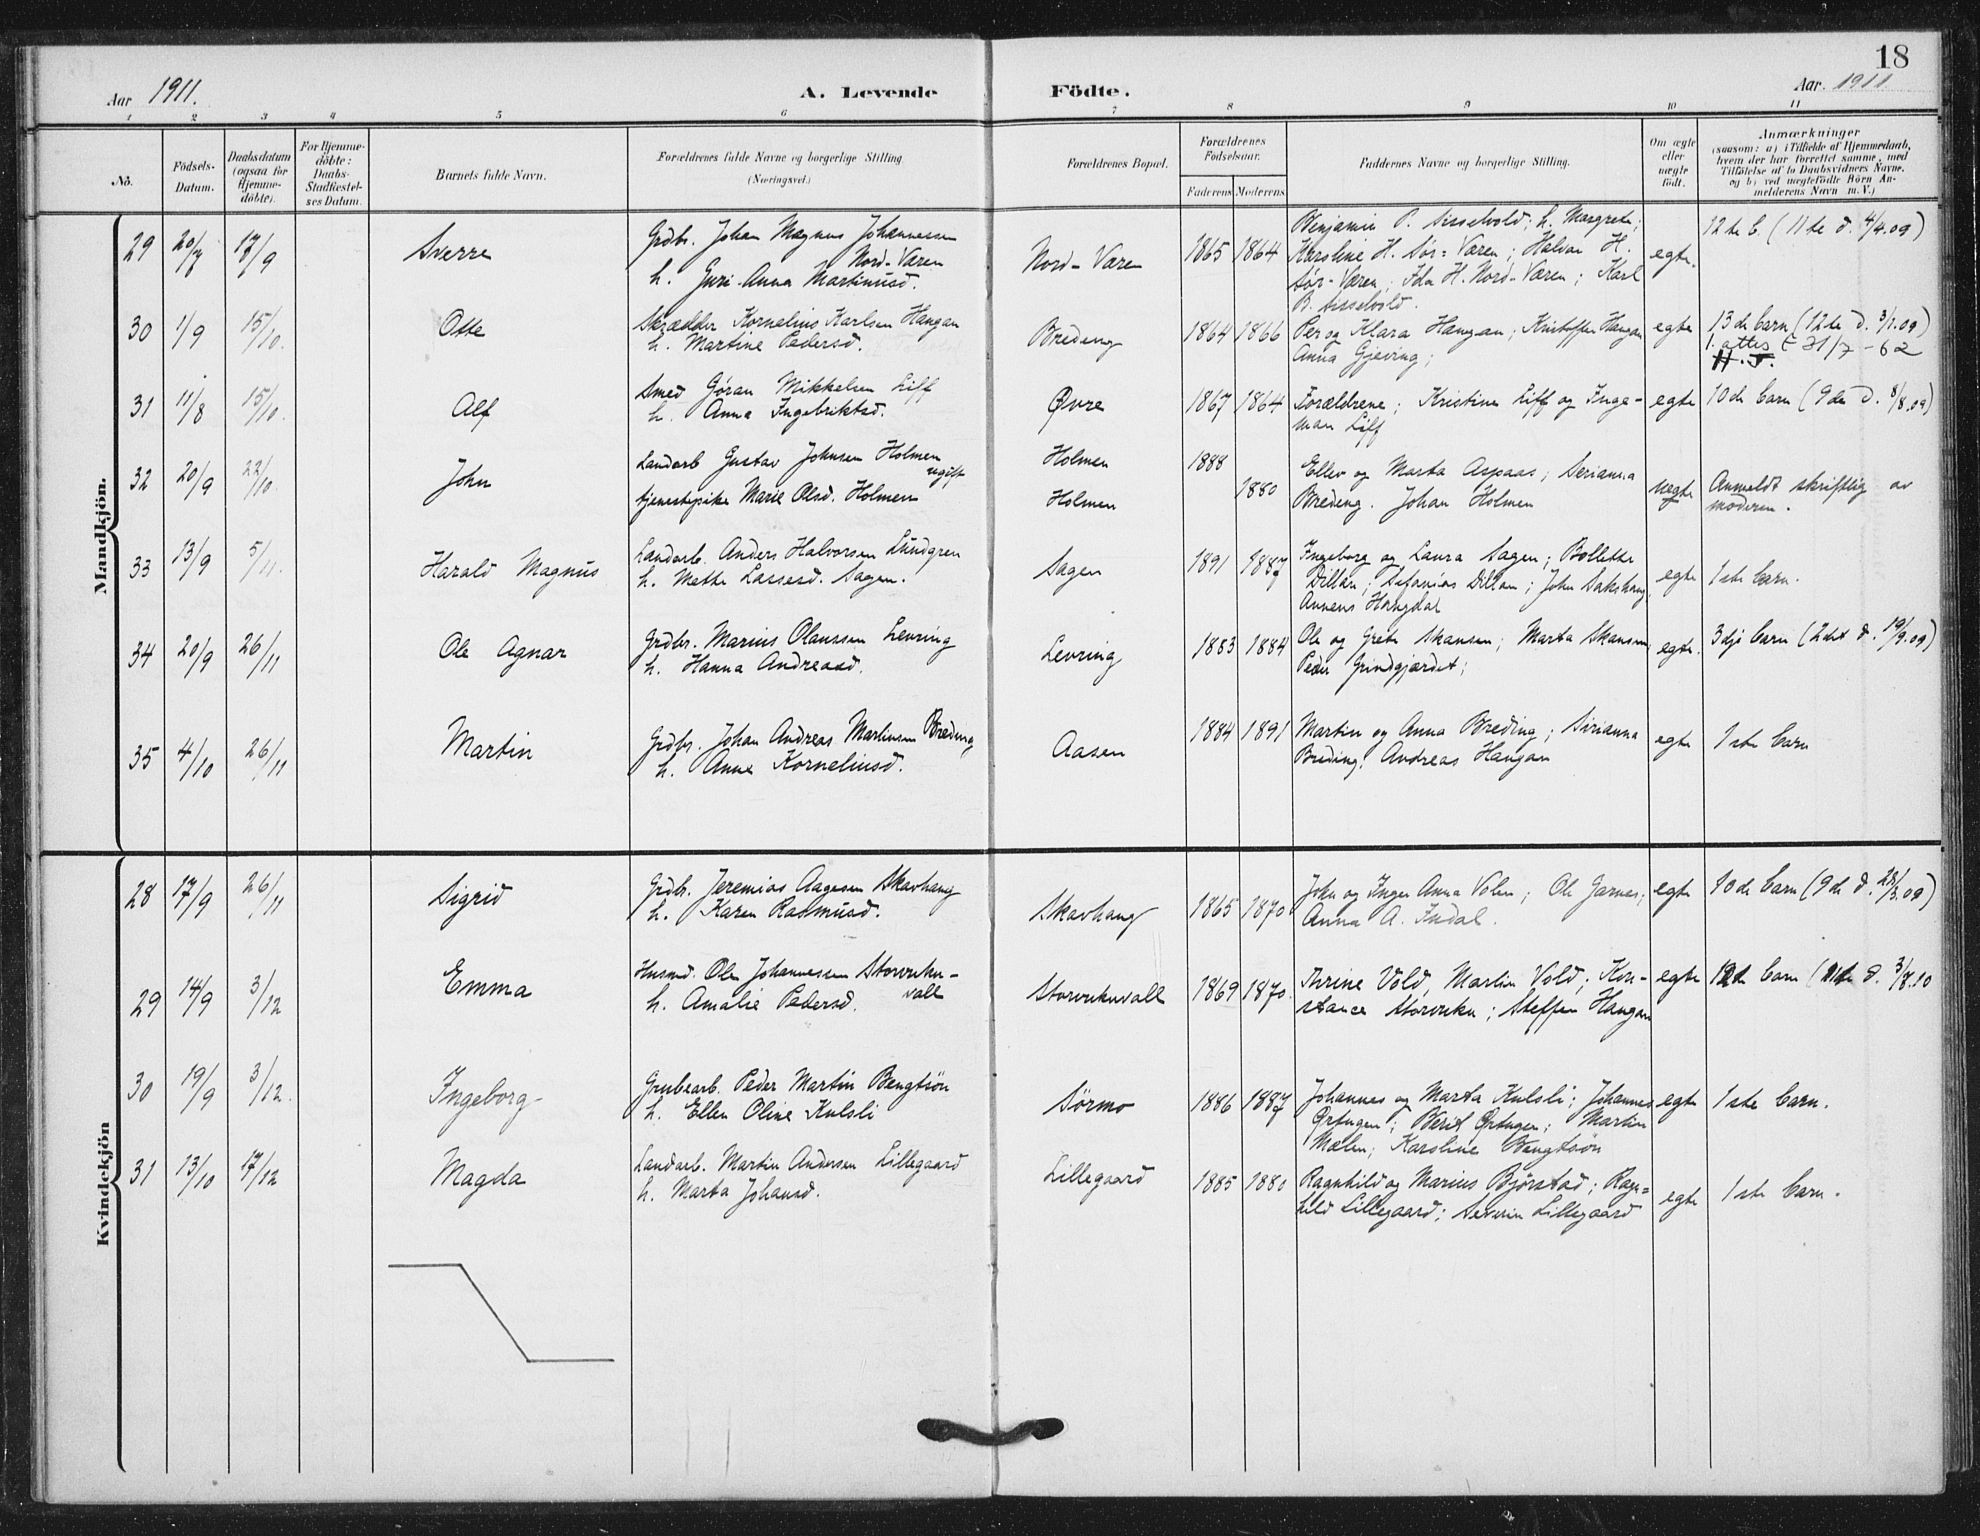 18
Aar 1911.
A. Levende Födte.
Aar. 1911
1 2 3 4 5 6 7 8 9 10 11
No.
Födsels-
Datum.
Daabsdatum
(ogsaa for
Hjemme-
döbte).
For Hjemme-
döbte:
Daabs-
Stadfæstel-
ses Datum.
Barnets fulde Navn.
Forældrenes fulde Navne og borgerlige Stilling
(Næringsvei.)
Forældrenes Bopæl.
Forældrenes
Födselsaar.
Faderens Moderens
Faddernes Navne og borgerlige Stilling.
Om ægte
eller
uægte
født.
Anmærkninger
(saasom: a) i Tilfælde af Hjemmedaab,
hvem der har forrettet samme, med
Tilföielse af to Daabsvidners Navne.
og b) ved uægtefödte Börn An-
melderens Navn m. V.)
Mandkjön.
29 20/7 17/9 Sverre
Grdbr. Johan Magnus Johannessen
Nord-Væren
h. Guri Anna Martinusd.
Nord-Være 1865 1864
Benjamin P. Sisselvold; h. Margrete;
Karoline H. Sør-Væren; Halvar H.
Sør-Væren; Ida H. Nord-Væren; Karl
B. Sisselvold.
egte.
12te b. (11te d. 4/4.09)
30 1/9 15/10. Otte
Skrædder Kornelius Karlsen Haugan
h. Martine Pedersd.
Breding 1864 1866
Per og Klara Haugan; Kristoffer Haugan
Anna Gjeving;
egte
13de barn (12te d. 3/1.09)
1. attest 31/7-62
H.J.
31 11/8 15/10. Alf
Smed Gøran Mikkelsen Liff
h. Anna Ingebriktsd.
Øvre 1867 1864
Forældrene; Kristine Liff og Inge-
man Liff
egte
10de barn (9de d. 8/8.09)
32 20/9 22/10. John
Landarb Gustav Johnsen Holmen
ugift
tjenestepike Marie Olsd. Holmen
Holmen 1888
Holmen 1880
Ellev og Marta Aspaas; Serianna
Breding. Johan Holmen
uegte
Anmeldt skriftlig av
moderen.
33 13/9 5/11. Harald Magnus
Landarb. Anders Halvorsen Lundgren
h. Mette Lassesd. Sagen.
Sagen 1891 1887
Ingeborg og Laura Sagen; Bollette
Dillan; Sefanias Dillan; John Sakshaug,
Annens Haugdal
egte
1ste barn.
34 20/9 26/11 Ole Agnar
Grdbr. Marius Olaussen Levring
h. Hanna Andreasd.
Levring 1883 1884
Ole og Grete Skansen; Marta Skansen;
Peder Grindgjærdet;
egte.
3dje barn (2det d. 19/9.09)
35 4/10 26/11 Martin
Grdbr. Johan Andreas Martinsen Breding
h. Anna Korneliusd.
Aasen 1884 1891
Martin og Anna Breding; Sirianna
Breding; Andreas Haugan
egte
1ste barn
Kvindekjön
28 17/9 26/11 Sigrid
Grdb. Jeremias Aagesen Skavhaug
h. Karen Rasmusd.
Skavhaug 1865 1870
John og Inger Anna Volen; Ole Garnes;
Anna A. Indal.
egte
10de barn (9de d. 28/3.09)
29 14/9 3/12 Emma
Husmd. Ole Johannessen Storvuku-
vall
h. Amalie Pedersd.
Storvukuvall 1869 1870.
Thrine Vold, Martin Vold; Kon-
stance Storvuku; Steffen Haugan
egte
12te barn (11te d. 3/7.10
30 19/9 3/12. Ingeborg
Grubearb. Peder Martin Bengtsön
h. Ellen Oline Kulsli
Sørmo 1886 1887
Johannes og Marta Kulsli; Johannes
Ørtugen; Berit Ørtugen; Martin
Mælen; Karoline Bengtsön
egte
1ste barn.
31 13/10 17/12 Magda
Landarb. Martin Andersen Lillegaard
h. Marta Johansd.
Lillegaard 1885 1880
Ragnhild og Marius Bjørstad; Ragn=
hild Lillegaard; Severin Lillegaard
egte
1ste barn.